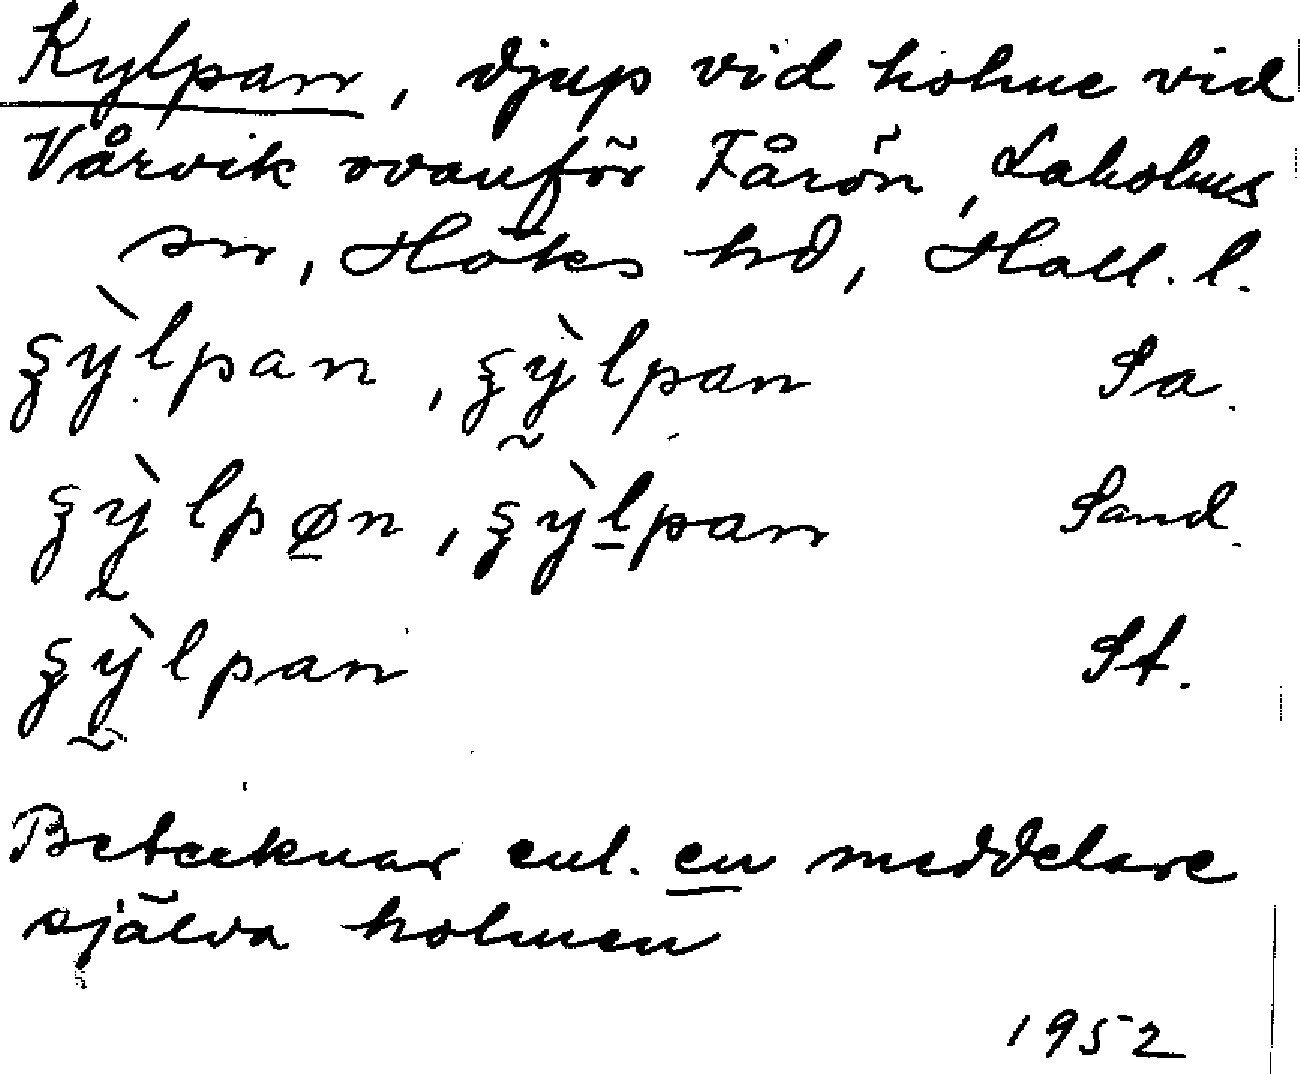 Kylpan, djup vid holme vid
Vårvik ovanför Fårön, Laholms
sn, Höks hd, Hall. l.
ʒỳlpan, ʒỳ̰lpan Sa.
ʒỳ̰lpø̱n, ʒỳḻpan Sand.
ʒỳ̰lpan St.
Betecknar enl. en meddelare
själva holmen
1952